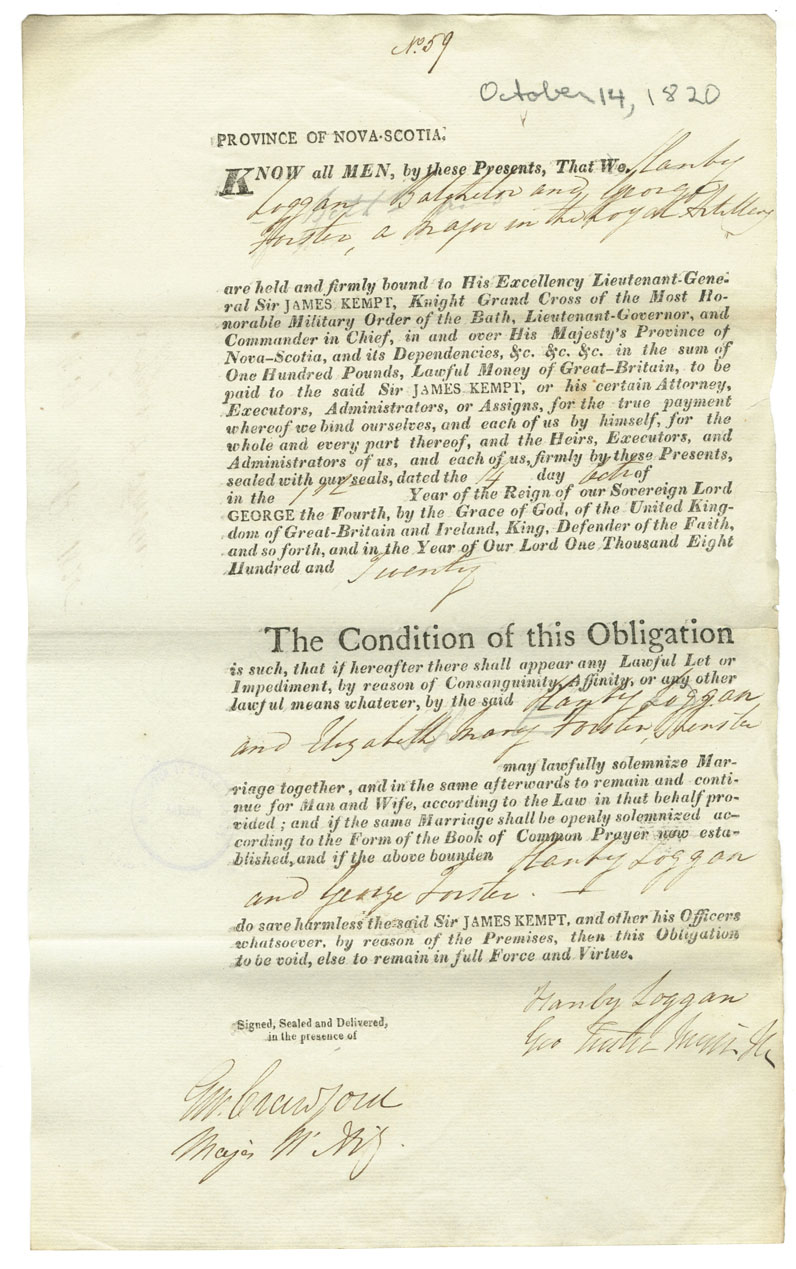 No. 59
October 14, 1820
PROVINCE OF NOVA-SCOTIA.
KNOW all MEN, by these Presents, That We, Hanby
Loggan, Batchelor and George
Forster, a Major in the Royal Artillery
are held and firmly bound to His Excellency Lieutenant-Gene-
ral Sir JAMES KEMPT, Knight Grand Cross of the Most Ho-
norable Military Order of the Bath, Lieutenant-Governor, and
Commander in Chief, in and over His Majesty's Province of
Nova-Scotia, and its Dependencies, &c. &c. &c. in the sum of
One Hundred Pounds, Lawful Money of Great-Britain, to be
paid to the said Sir JAMES KEMPT, or his certain Attorney,
Executors, Administrators, or Assigns, for the true payment
whereof we bind ourselves, and each of us by himself, for the
whole and every part thereof, and the Heirs, Executors, and
Administrators of us, and each of us, firmly by these Presents,
sealed with our seals, dated the 14 day Octr of
in the 1st Year of the Reign of our Sovereign Lord
GEORGE the Fourth, by the Grace of God, of the United King-
dom of Great-Britain and Ireland, King, Defender of the Faith,
and so forth, and in the Year of Our Lord One Thousand Eight
Hundred and Twenty
The Condition of this Obligation
is such, that if hereafter there shall appear any Lawful Let or
Impediment, by reason of Consanguinity, Affinity, or any other
lawful means whatever, by the said Hanby Loggan
and Elizabeth Mary Forster, Spinster
may lawfully solemnize Mar-
riage together, and in the same afterwards to remain and conti-
nue for Man and Wife, according to the Law in that behalf pro-
vided; and if the same Marriage shall be openly solemnized ac-
cording to the Form of the Book of Common Prayer now esta-
blished, and if the above bounden Hanby Loggan
and George Forster.
do save harmless the said Sir JAMES KEMPT, and other his Officers
whatsoever, by reason of the Premises, then this Obligation
to be void, else to remain in full Force and Virtue.
Hanby Loggan
Geo Forster Major
Signed, Sealed and Delivered,
in the presence of
Crawford
Major